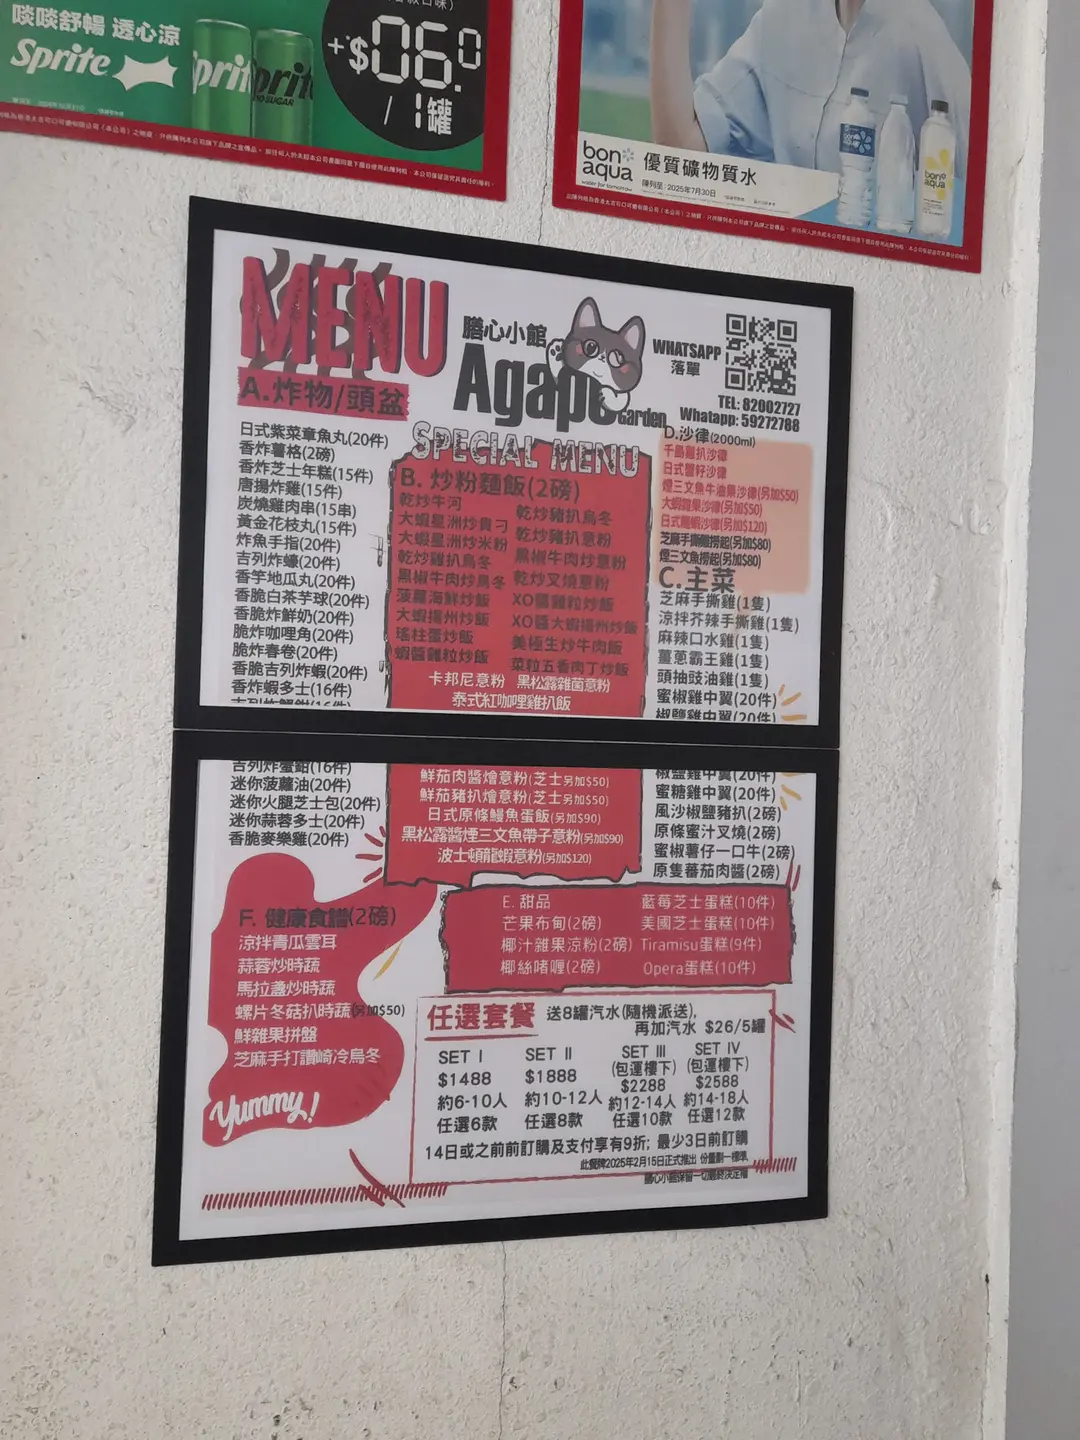 啖啖舒暢 透心涼
Sprite
+$06.0
/1罐
bon aqua
water for tomorrow
優質礦物質水
陳列至：2025年7月30日
MENU
膳心小館
Agape
Garden
WHATSAPP
落單
TEL: 82002727
Whatapp: 59272788
A.炸物/頭盆
日式紫菜章魚丸(20件)
香炸薯格(2磅)
香炸芝士年糕(15件)
唐揚炸雞(15件)
炭燒雞肉串(15串)
黃金花枝丸(15件)
炸魚手指(20件)
吉列炸蠔(20件)
香芋地瓜丸(20件)
香脆白茶芋球(20件)
香脆炸鮮奶(20件)
脆炸咖哩角(20件)
脆炸春卷(20件)
香脆吉列炸蝦(20件)
香炸蝦多士(16件)
吉列炸蟹鉗(16件)
迷你菠蘿油(20件)
迷你火腿芝士包(20件)
迷你蒜蓉多士(20件)
香脆麥樂雞(20件)
SPECIAL MENU
B. 炒粉麵飯(2磅)
乾炒牛河
大蝦星洲炒貴刁
大蝦星洲炒米粉
乾炒雞扒烏冬
黑椒牛肉炒烏冬
菠蘿海鮮炒飯
大蝦揚州炒飯
瑤柱蛋炒飯
蝦醬雞粒炒飯
乾炒豬扒烏冬
乾炒豬扒意粉
黑椒牛肉炒意粉
乾炒叉燒意粉
XO醬雞粒炒飯
XO醬大蝦揚州炒飯
美極生炒牛肉飯
菜粒五香肉丁炒飯
卡邦尼意粉 黑松露雜菌意粉
泰式紅咖哩雞扒飯
鮮茄肉醬燴意粉(芝士另加$50)
鮮茄豬扒燴意粉(芝士另加$50)
日式原條鰻魚蛋飯(另加$90)
黑松露醬煙三文魚帶子意粉(另加$90)
波士頓龍蝦意粉(另加$120)
D.沙律(2000ml)
千島雞扒沙律
日式蟹籽沙律
煙三文魚牛油果沙律(另加$50)
大蝦蘋果沙律(另加$50)
日式龍蝦沙律(另加$120)
芝麻手撕雞撈起(另加$80)
煙三文魚撈起(另加$80)
C.主菜
芝麻手撕雞(1隻)
涼拌芥辣手撕雞(1隻)
麻辣口水雞(1隻)
薑蔥霸王雞(1隻)
頭抽豉油雞(1隻)
蜜椒雞中翼(20件)
椒鹽雞中翼(20件)
蜜糖雞中翼(20件)
風沙椒鹽豬扒(2磅)
原條蜜汁叉燒(2磅)
蜜椒薯仔一口牛(2磅)
原隻蕃茄肉醬(2磅)
E. 甜品
芒果布甸(2磅)
椰汁雜果涼粉(2磅)
椰絲啫喱(2磅)
藍莓芝士蛋糕(10件)
美國芝士蛋糕(10件)
Tiramisu蛋糕(9件)
Opera蛋糕(10件)
F. 健康食譜(2磅)
涼拌青瓜雲耳
蒜蓉炒時蔬
馬拉盞炒時蔬
螺片冬菇扒時蔬(另加$50)
鮮雜果拼盤
芝麻手打讚崎冷烏冬
Yummy!
任選套餐 送8罐汽水(隨機派送),
再加汽水 $26/5罐
SET I
$1488
約6-10人
任選6款
SET II
$1888
約10-12人
任選8款
SET III
(包運樓下)
$2288
約12-14人
任選10款
SET IV
(包運樓下)
$2588
約14-18人
任選12款
14日或之前前訂購及支付享有9折; 最少3日前訂購
此餐牌2025年2月15日正式推出 份量劃一標準
膳心小館保留一切最終決定權